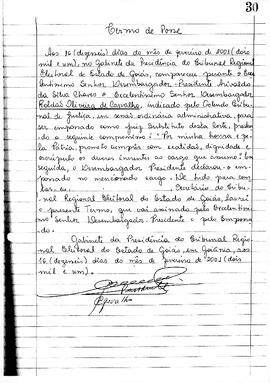 30
Termo de Posse
Aos 16 (dezesseis) dias do mês de fevereiro de 2001 (dois
mil e um), no Gabinete da Presidência do Tribunal Regional
Eleitoral do Estado de Goiás, compareceu perante o Exce
lentíssimo Senhor Desembargador-Presidente
da Silva Chaves o Excelentíssimo Senhor Desembargador
Roldão Oliveira de Carvalho, indicado pelo Colendo Tribu
nal de Justiça, em sessão ordinária administrativa, para
ser empossado como Juiz Substituto desta Corte, prestan
do o seguinte compromisso: " Por minha honra e pe
la Pátria, prometo cumprir com lealdade, dignidade e
escrúpulo os deveres inerentes ao cargo que assumo". Em
seguida, o Desembargador Presidente declarou o em
possado no mencionado cargo. De tudo para cons
tar, eu, Secretário do Tribu
nal Regional Eleitoral do Estado de Goiás, lavrei
o presente Termo, que vai assinado pelo Excelentíssi
mo Senhor Desembargador-Presidente e pelo Empossa
do.
Gabinete da Presidência do Tribunal Regio
nal Eleitoral do Estado de Goiás, em Goiânia, aos
16 (dezesseis) dias do mês de fevereiro de 2001 (dois
mil e um).